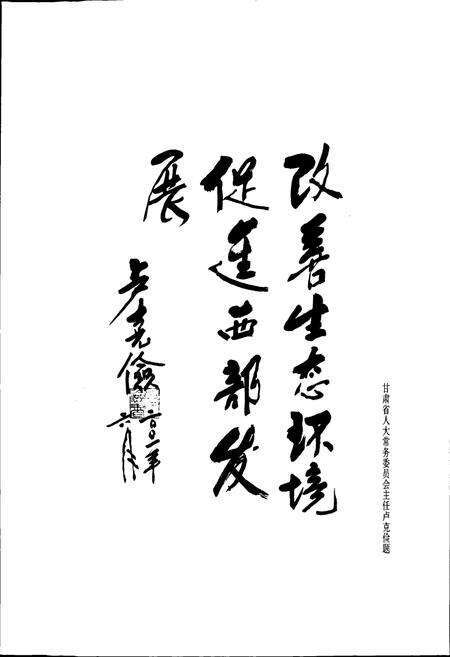 改善生态环境
促进西部发
展
卢克俭
二00一年
六月
甘肃省人大常务委员会主任卢克俭题